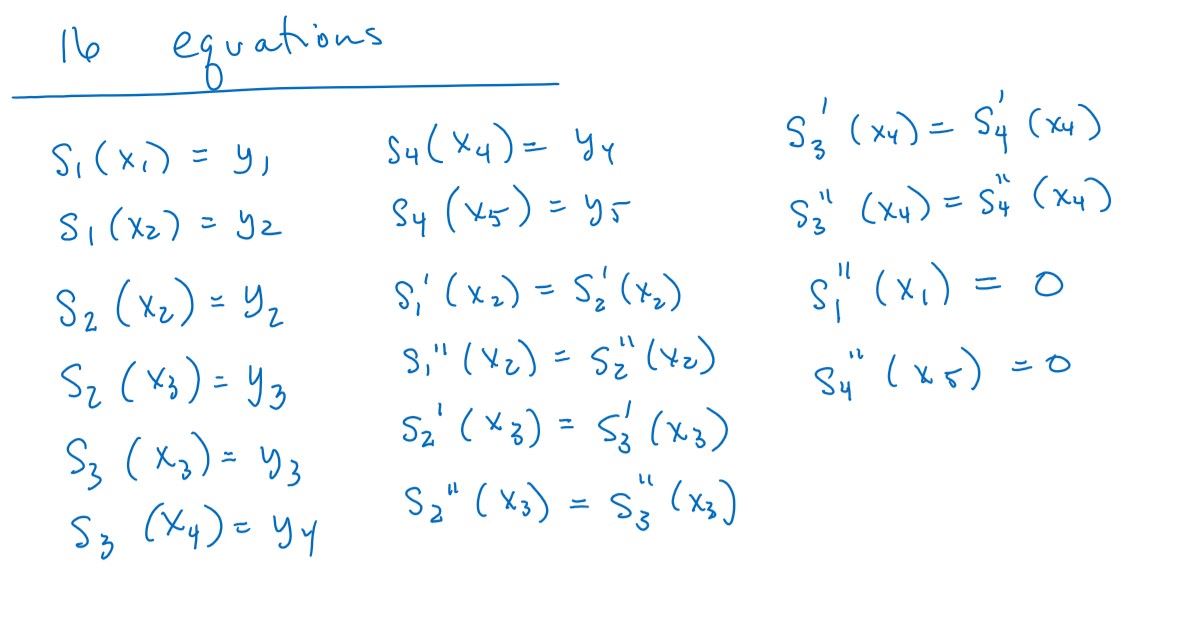 16 equations
S₁(x₁) = y₁
S₁(x₂) = y₂
S₂(x₂) = y₂
S₂(x₃) = y₃
S₃(x₃) = y₃
S₃(x₄) = y₄
S₄(x₄) = y₄
S₄(x₅) = y₅
S₁'(x₂) = S₂'(x₂)
S₁''(x₂) = S₂''(x₂)
S₂'(x₃) = S₃'(x₃)
S₂''(x₃) = S₃''(x₃)
S₃'(x₄) = S₄'(x₄)
S₃''(x₄) = S₄''(x₄)
S₁''(x₁) = 0
S₄''(x₅) = 0